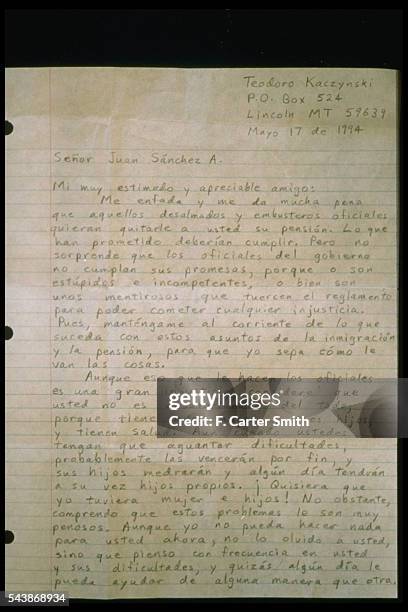 Teodoro Kaczynski
P.O. Box 524
Lincoln MT 59639
Mayo 17 de 1994
Señor Juan Sánchez A.
Mi muy estimado y apreciable amigo:
Me enfada y me da mucha pena
que aquellos desalmados y embusteros oficiales
quieran quitarle a usted su pensión. Lo que
han prometido deberían cumplir. Pero no
sorprende que los oficiales del gobierno
no cumplan sus promesas, porque o son
estúpidos e incompetentes, o bien son
unos mentirosos que tuercen el reglamento
para poder cometer cualquier injusticia.
Pues, manténgame al corriente de lo que
suceda con estos asuntos de la inmigración
y la pensión, para que yo sepa cómo le
van las cosas.
Aunque eso que le hacen los oficiales
es una gran
usted no es
porque tiene
y tienen salud. Aunque ustedes
tengan que aguantar dificultades,
probablemente las vencerán por fin, y
sus hijos medrarán y algún día tendrán
a su vez hijos propios. ¡Quisiera que
yo tuviera mujer e hijos! No obstante,
comprendo que estos problemas le son muy
penosos. Aunque yo no pueda hacer nada
para usted ahora, no lo olvido a usted,
sino que pienso con frecuencia en usted
y sus dificultades, y quizás algún día le
pueda ayudar de alguna manera que otra.
gettyimages
Credit: F. Carter Smith
543868934